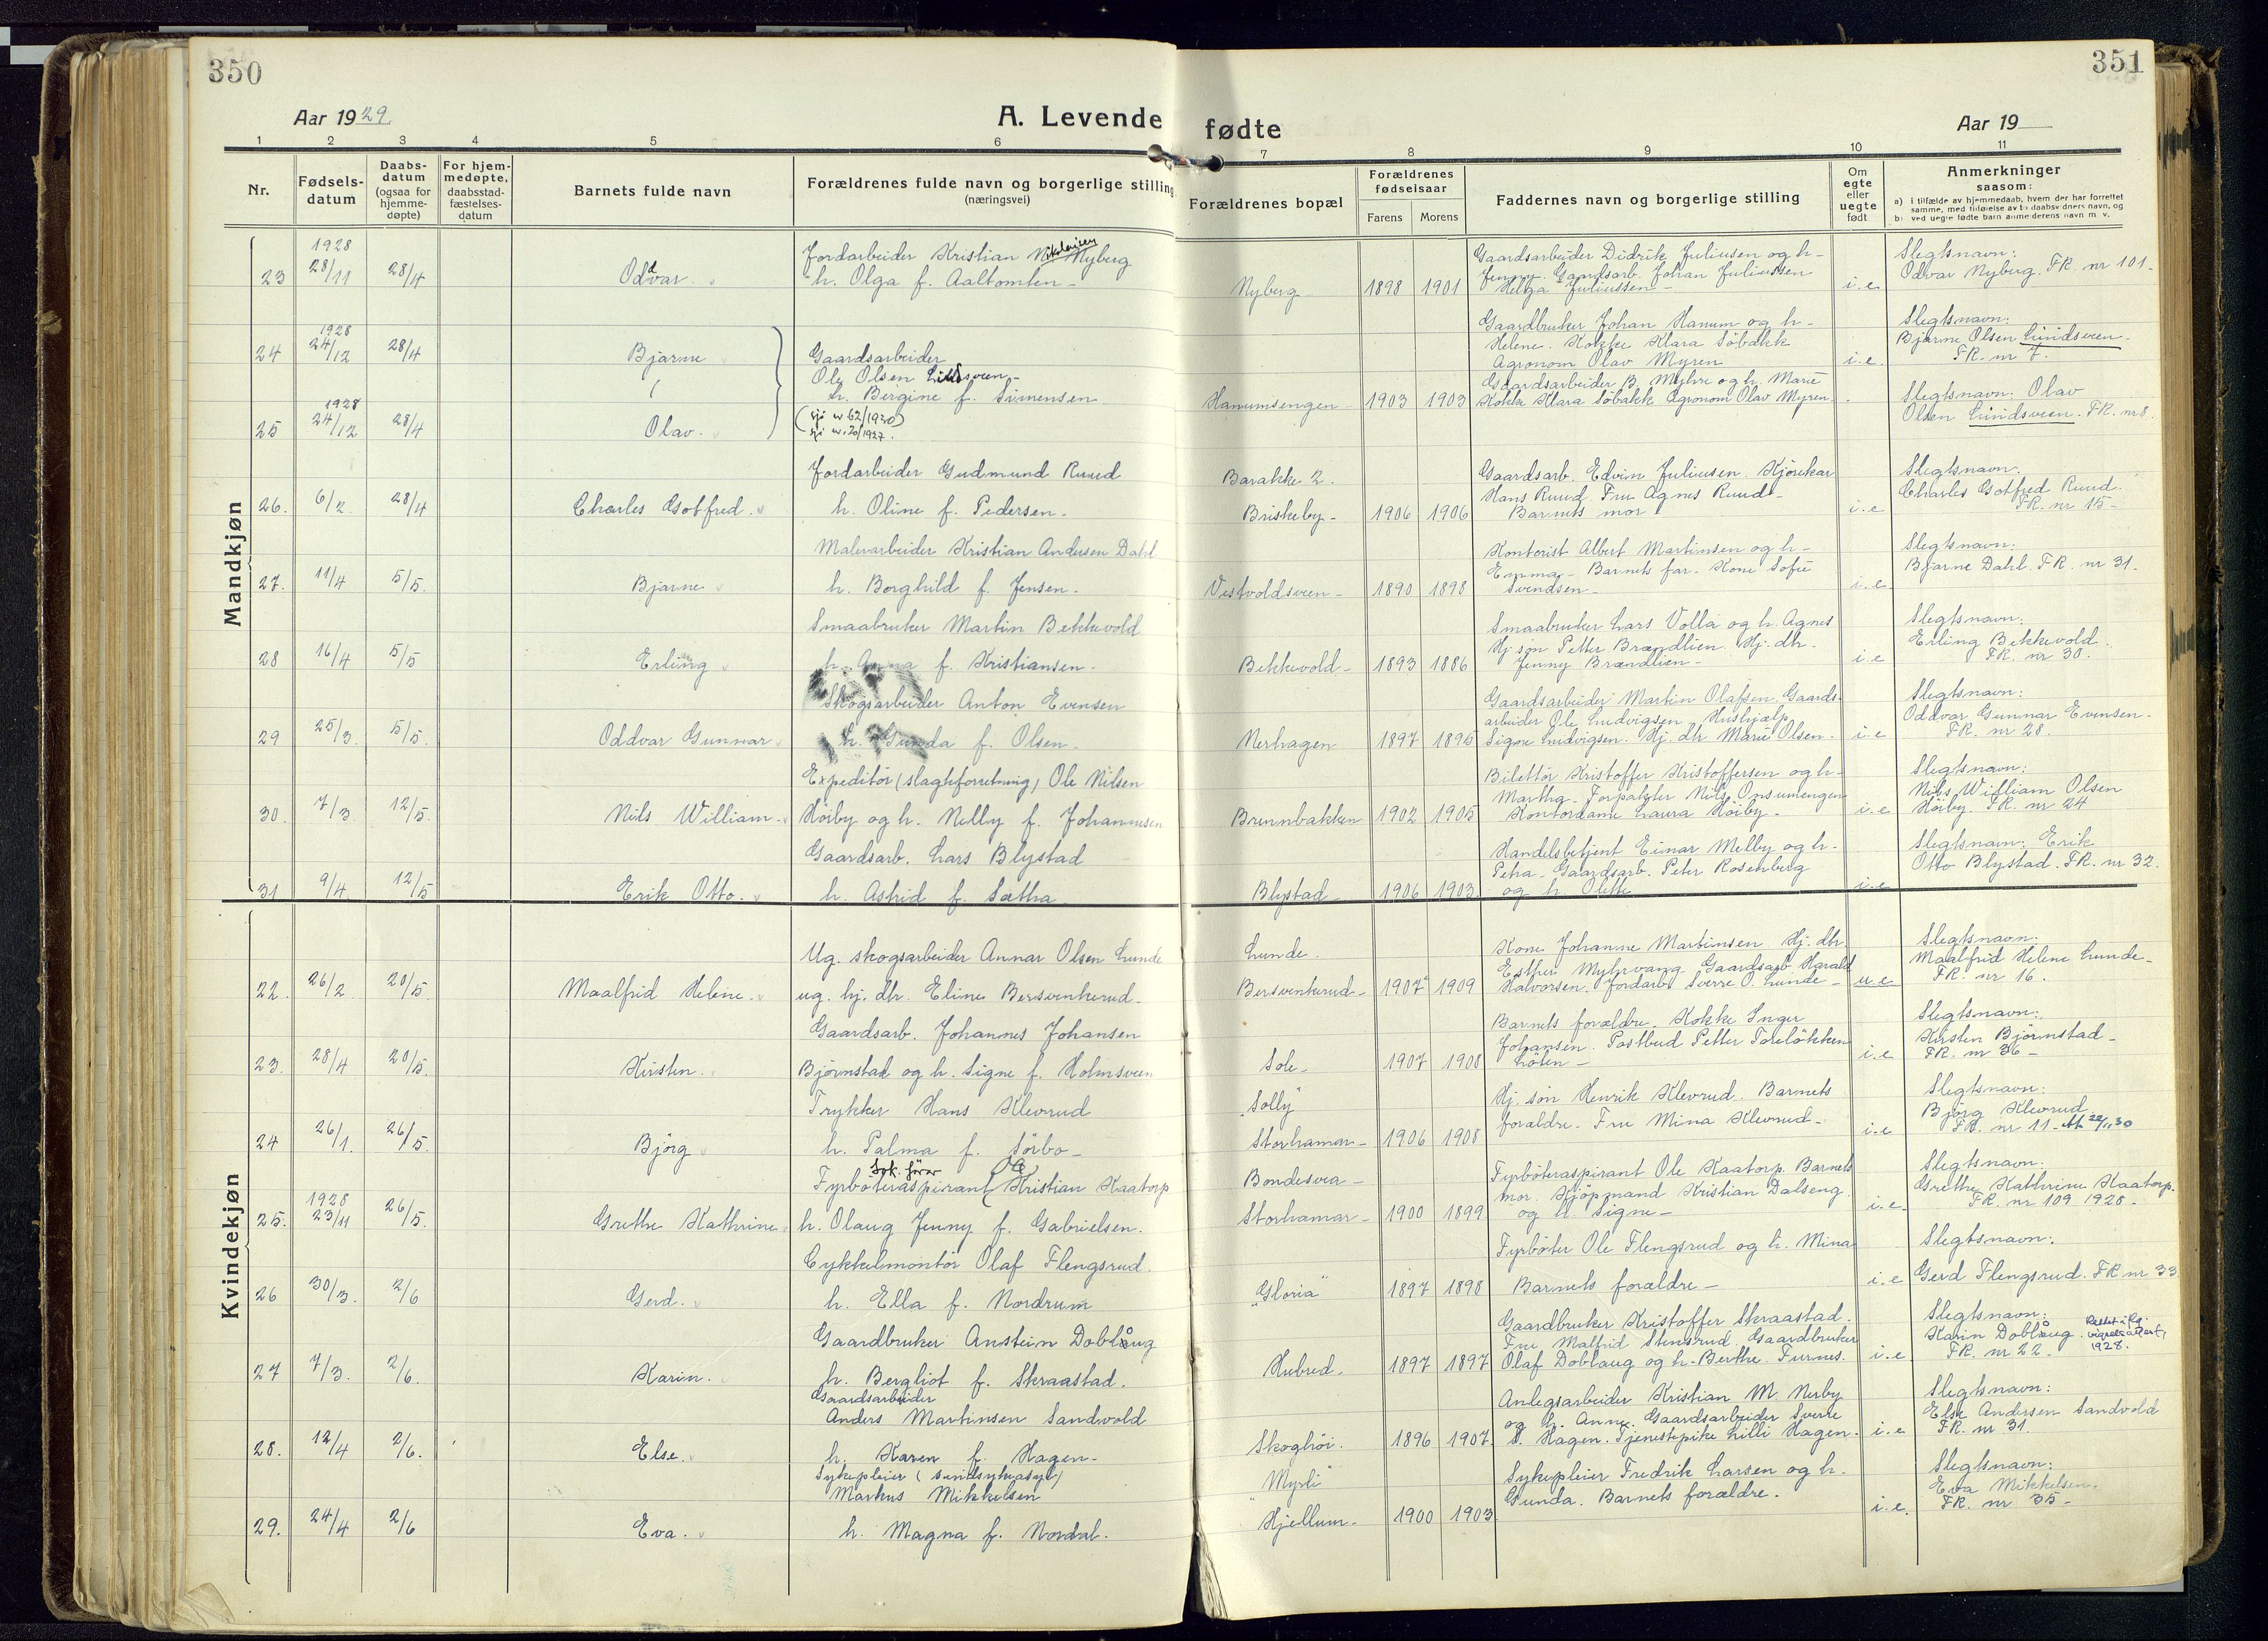 350
351
Aar 1929.
A. Levende fødte
Aar 19
1 2 3 4 5 6 7 8 9 10 11
Nr.
Fødsels-
datum
Daabs-
datum
(ogsaa for
hjemme-
døpte)
For hjem-
medøpte,
daabsstad-
fæstelses-
datum
Barnets fulde navn
Forældrenes fulde navn og borgerlige stilling
(næringsvei)
Forældrenes bopæl
Forældrenes
fødselsaar
Farens Morens
Faddernes navn og borgerlige stilling
Om
egte
eller
uegte
født
Anmerkninger
saasom:
a) i tilfælde av hjemmedaab, hvem der har forrettet
samme, med tilføielse av to daabsvidners navn, og
b) ved uegte fødte barn anmelderens navn m. v.
Mandkjøn
1928
23 28/11 28/4
Oddvar.
Jordarbeider Kristian Nikolaisen Nyberg
h. Olga f. Aaltomten -
Nyberg 1898 1901
Gaardsarbeider Didrik Juliusen og h-
Jenny. Gaardsarb. Johan Juliussen
Helga Juliussen -
i.e.
Slegtsnavn:
Odvar Nyberg. FR. nr 101.
1928
24 24/12 28/4
Bjarne
Gaardsarbeider
Ole Olsen Lindsveen -
h. Bergine f. Simensen
(sje nr 62/1930)
sje nr. 20/1927.
Gaardbruker Johan Hanum og h-
Helene. Kokke Klara Søbakk
Agronom Olav Myren
i.e.
Slegtsnavn:
Bjarne Olsen Lindsveen.
FR. nr 7.
1928
25 24/12 28/4
Olav.
Hanumsengen 1903 1903
Gaardsarbeider B. Myhre og h. Marie
Kokke Klara Søbakk Agronom Olav Myren
Slegtsnavn: Olav
Olsen Lindsveen. FR. nr 8.
26. 6/2 28/4
Charles Gotfred.
Jordarbeider Gudmund Ruud
h. Oline f. Pedersen -
Barakke 2.
Briskeby - 1906 1906
Gaardsarb. Edvin Juliusen. Kjörekar
Hans Ruud. Fru Agnes Ruud -
Barnets mor
i.e
Slegtsnavn:
Charles Gotfred Ruud.
FR. nr 15 -
27. 11/4 5/5.
Bjarne
Malerarbeider Kristian Andersen Dahl
h. Borghild f. Jensen.
Vestvoldsveen - 1890 1898
Kontorist Albert Martinsen og h-
Emma - Barnets far - Kone Sofie
Svendsen -
i.e
Slegtsnavn:
Bjarne Dahl. FR. nr 31.
28 16/4 5/5.
Erling
Smaabruker Martin Bekkevold
h. Anna f. Kristiansen -
Bekkevold - 1893 1886
Smaabruker Lars Volla og h. Agnes
Hj. søn Petter Brændlien. Hj. dh.
Jenny Brændlien -
i.e
Slegtsnavn:
Erling Bekkevold.
FR. nr 30.
29 25/3. 5/5.
Oddvar Gunnar
Skogsarbeider Anton Evensen
h. Gunda f. Olsen.
Nerhagen 1897 1895
Gaardsarbeider Martin Olafsen. Gaards-
arbeider Ole Ludvigsen. Hushjælp
Signe Ludvigsen. Hj. dh Marie Olsen.
i.e
Slegtsnavn:
Oddvar Gunnar Evensen.
FR. nr 28.
30. 7/3 12/5.
Nils William.
Expeditör (slagteforretning) Ole Nilsen
Höiby og h. Nelly f. Johannesen
Brennbakken 1902 1905
Bilettör Kristoffer Kristoffersen og h-
Martha - Forpakter Nils Onsumengen
Kontordame Laura Höiby -
i.e
Slegtsnavn:
Nils William Olsen
Höiby. FR. nr 24
31 9/4 12/5
Erik Otto.
Gaardsarb. Lars Blystad
h. Astrid f. Sætha
Blystad - 1906 1903
Handelsbetjent Einar Melby og h-
Petra - Gaardsarb. Peter Rosenberg
og h. Olette
i.e
Slegtsnavn: Erik
Otto Blystad. FR. nr 32.
Kvindekjøn
22. 26/2 20/5.
Maalfrid Helene.
Ug. skogsarbeider Annar Olsen Lunde
ug. hj. dh. Eline Bersvenkerud.
Lunde.
Bersvenkerud - 1907 1909
Kone Johanne Martinsen Hj. dh
Esther Myhrvang Gaardsarb Harald
Halvorsen. Jordarb Sverre O. Lunde -
u.e
Slegtsnavn:
Maalfrid Helene Lunde -
FR. nr 16.
23. 28/4 20/5.
Kirsten.
Gaardsarb. Johannes Johansen
Björnstad og h. Signe f. Holmsveen
Sole - 1907 1908
Barnets forældre. Kokke Inger
Johansen. Postbud Petter Toreløkken
Löten -
i.e
Slegtsnavn:
Kirsten Björnstad -
FR. nr 36 -
24 26/1. 26/5.
Björg
Trykker Hans Klevrud
h. Palma f. Sörbo -
"Solly"
Storhamar - 1906 1908
Hj. søn Henrik Klevrud. Barnets
forældre. Fru Mina Klevrud -
i.e
Slegtsnavn:
Björg Klevrud
FR. nr 11 - Att 22/11 30
1928
25. 23/11 26/5.
Grethe Kathrine
Lok. fører Ole
Fyrböteraspirant Kristian Kaatorp
h. Olaug Jenny f. Gabrielsen.
Bondesvea -
Storhamar - 1900 1899
Fyrböteraspirant Ole Kaatorp. Barnets
mor. Kjöpmand Kristian Dalseng.
og h. Signe -
i.e.
Slegtsnavn:
Grethe Kathrine Kaatorp.
FR. nr 109 1928 -
26 30/3. 2/6
Gerd.
Cykkelmontör Olaf Flengsrud.
h. Ella f. Nordrum
"Gloria" 1897 1898
Fyrböter Ole Flengsrud og h. Mina
Barnets forældre -
i.e
Slegtsnavn:
Gerd Flengsrud. FR nr 33
27 7/3. 2/6.
Karin.
Gaardbruker Anstein Doblaug
h. Bergliot f. Skraastad.
Hubred. 1897 1897
Gaardbruker Kristoffer Skraastad.
Fru Malfrid Stensrud. Gaardbruker
Olaf Doblaug og h. Berthe. Furnes.
i.e
Slegtsnavn:
Karin Doblaug.
FR. nr 22 -
1928.
28. 12/4 2/6.
Else.
Gaardsarbeider
Anders Martinsen Sandvold
h. Karen f. Hagen -
Skoghöi. 1896 1907
Anlegsarbeider Kristian M. Nerby
og h. Anne. Gaardsarbeider Sverre
Hagen. Tjenestepike Lilli Hagen.
i.e
Slegtsnavn:
Else Andersen Sandvold
FR. nr 31.
29. 24/4 2/6
Eva.
Sykepleier (sindsykeasyl)
Markus Mikkelsen
h. Magna f. Nordal.
"Myrli"
Hjellum - 1900 1903
Sykepleier Fredrik Larsen og h.
Gunda. Barnets forældre.
i.e.
Slegtsnavn:
Eva Mikkelsen.
FR. nr 35 -